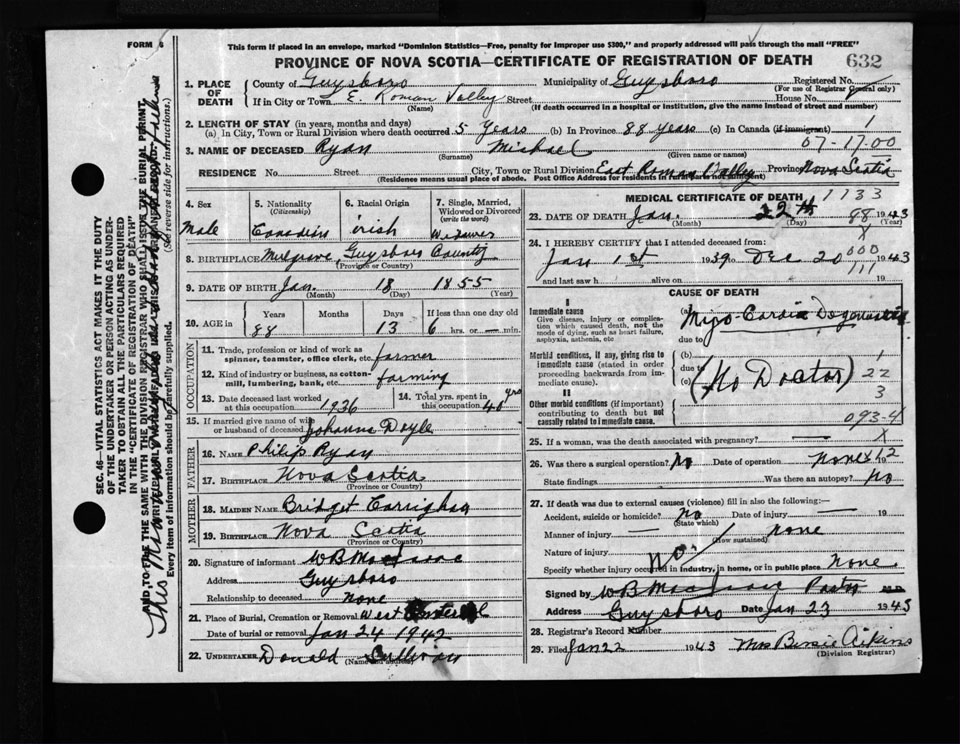 FORM 6
This form if placed in an envelope, marked "Dominion Statistics—Free, penalty for improper use $300," and properly addressed will pass through the mail "FREE"
PROVINCE OF NOVA SCOTIA—CERTIFICATE OF REGISTRATION OF DEATH
632
1. PLACE OF DEATH
County of Guysboro Municipality of Guysboro Registered No.
(For use of Registrar General only)
If in City or Town E. Roman Valley Street House No.
(Name) (If death occurred in a hospital or institution, give the name instead of street and number)
2. LENGTH OF STAY (in years, months and days)
(a) In City, Town or Rural Division where death occurred 5 Years (b) In Province 88 years (c) In Canada (if immigrant) 1
07-17.00
3. NAME OF DECEASED Ryan Michael
(Surname) (Given name or names)
RESIDENCE No. Street City, Town or Rural Division East Roman Valley Province Nova Scotia
(Residence means usual place of abode. Post Office Address for residents in rural parts not sufficient)
4. Sex 5. Nationality (Citizenship) 6. Racial Origin 7. Single, Married, Widowed or Divorced (write the word)
Male Canadian irish Widower
8. BIRTHPLACE Mulgrave, Guysboro County
(Province or Country)
9. DATE OF BIRTH Jan. 18 1855
(Month) (Day) (Year)
10. AGE in Years Months Days If less than one day old
88 13 6 hrs. or — min.
OCCUPATION
11. Trade, profession or kind of work as spinner, teamster, office clerk, etc. farmer
12. Kind of industry or business, as cotton-mill, lumbering, bank, etc. farming
13. Date deceased last worked at this occupation 1936 14. Total yrs. spent in this occupation 40 yrs
15. If married give name of wife or husband of deceased Johanna Doyle
FATHER
16. NAME Philip Ryan
17. BIRTHPLACE Nova Scotia
(Province or Country)
MOTHER
18. MAIDEN NAME Bridget
19. BIRTHPLACE Nova Scotia
(Province or Country)
20. Signature of informant W B MacIsaac
Address Guysboro
Relationship to deceased none
21. Place of Burial, Cremation or Removal West
Date of burial or removal Jan 24 1942
22. UNDERTAKER Donald Sullivan
(Name and address)
MEDICAL CERTIFICATE OF DEATH 1133
23. DATE OF DEATH Jan. 22th 88 1943
(Month) (Day) (Year)
X
24. I HEREBY CERTIFY that I attended deceased from:
Jan 1st 1939 to Dec 20 000 1943
and last saw h alive on 111 19
CAUSE OF DEATH
I
Immediate cause
Give disease, injury or complication which caused death, not the mode of dying, such as heart failure, asphyxia, asthenia, etc.
(a) Myo-Cardia Degeneration
due to
Morbid conditions, if any, giving rise to immediate cause (stated in order proceeding backwards from immediate cause).
(b)
due to
(c)
(No Doctor)
1
22
3
II
Other morbid conditions (if important) contributing to death but not causally related to immediate cause.
093-4
25. If a woman, was the death associated with pregnancy? — X
26. Was there a surgical operation? No Date of operation None 19
State findings Was there an autopsy? No
27. If death was due to external causes (violence) fill in also the following:—
Accident, suicide or homicide? No Date of injury — 19
(State which)
Manner of injury — none
(How sustained)
Nature of injury No
Specify whether injury occurred in industry, in home, or in public place None
Signed by W B MacIsaac Pastor M.D.
Address Guysboro Date Jan 23 1943
28. Registrar's Record Number
29. Filed Jan 22 1943 Mrs Aikins
(Division Registrar)
SEC. 46—VITAL STATISTICS ACT MAKES IT THE DUTY OF THE UNDERTAKER OR PERSON ACTING AS UNDERTAKER TO OBTAIN ALL THE PARTICULARS REQUIRED IN THE "CERTIFICATE OF REGISTRATION OF DEATH" AND TO FILE THE SAME WITH THE DIVISION REGISTRAR WHO SHALL ISSUE THE BURIAL PERMIT.
(See reverse side for instructions.)
Every item of information should be carefully supplied.